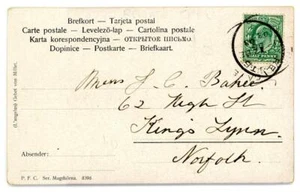 Brefkort – Tarjeta postal
Carte postale – Levelező-lap – Cartolina postale
Karta korespondencyjna – ОТКРЫТОЕ ПИСЬМО.
Dopisnice – Postkarte – Briefkaart.
62 High St
King's Lynn
Norfolk
Absender:
P. F. C. Ser.